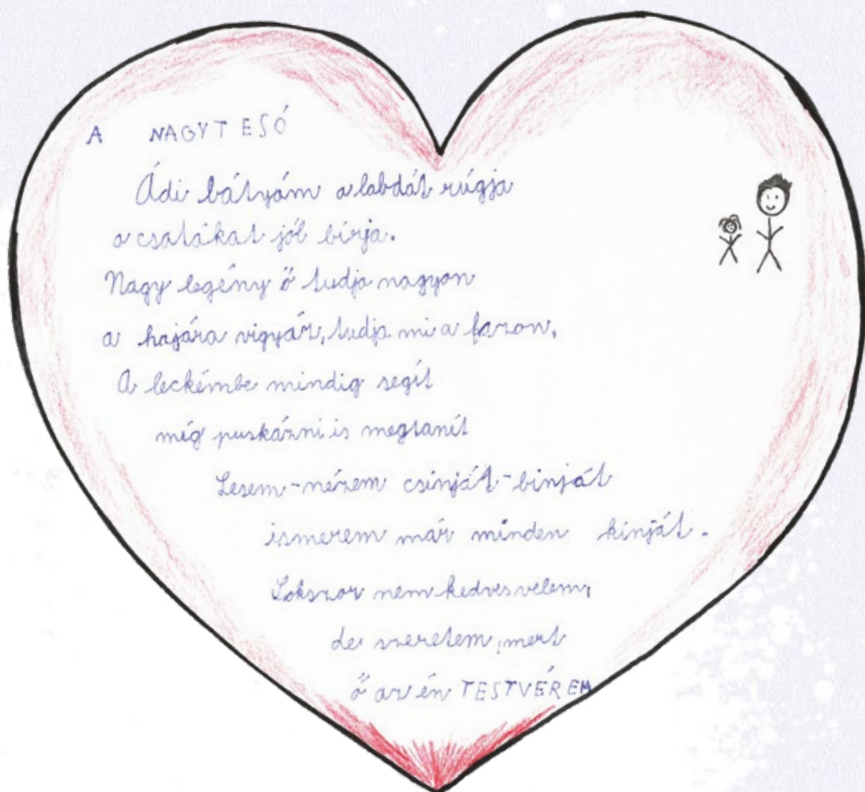 A NAGYTESÓ
Ádi bátyám a labdát rúgja
a csatákat jól bírja.
Nagy legény ő tudja nagyon
a hajára vigyáz, tudja mi a fazon,
A leckémbe mindig segít
még puskázni is megtanít
Lesem-nézem csínját-bínját
ismerem már minden kínját.
Sokszor nem kedves velem,
de szeretem, mert
ő az én TESTVÉREM